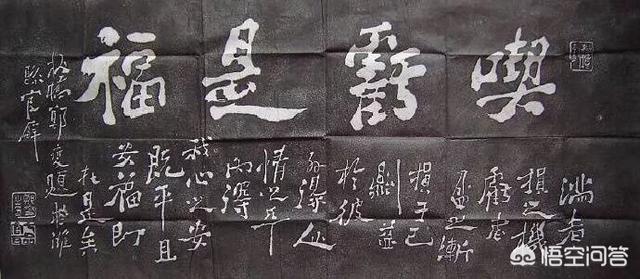 喫虧是福
滿者
損之機
虧者
盈之漸
損于己
則益
於彼
外得人
情之平
內得
我心之安
既平且
安福即
在是矣
板橋鄭燮題於濰
縣官廨
悟空问答